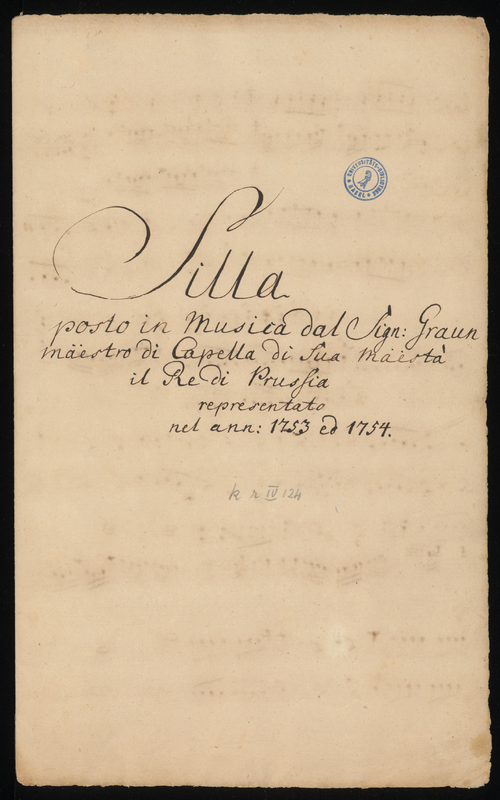 UNIVERSITÄTS-BIBLIOTHEK BASEL
Silla
posto in Musica dal Sign: Graun
mäestro di Capella di Sua Mäestà
il Re di Prussia
representato
nel ann: 1753 ed 1754.
k r IV 124